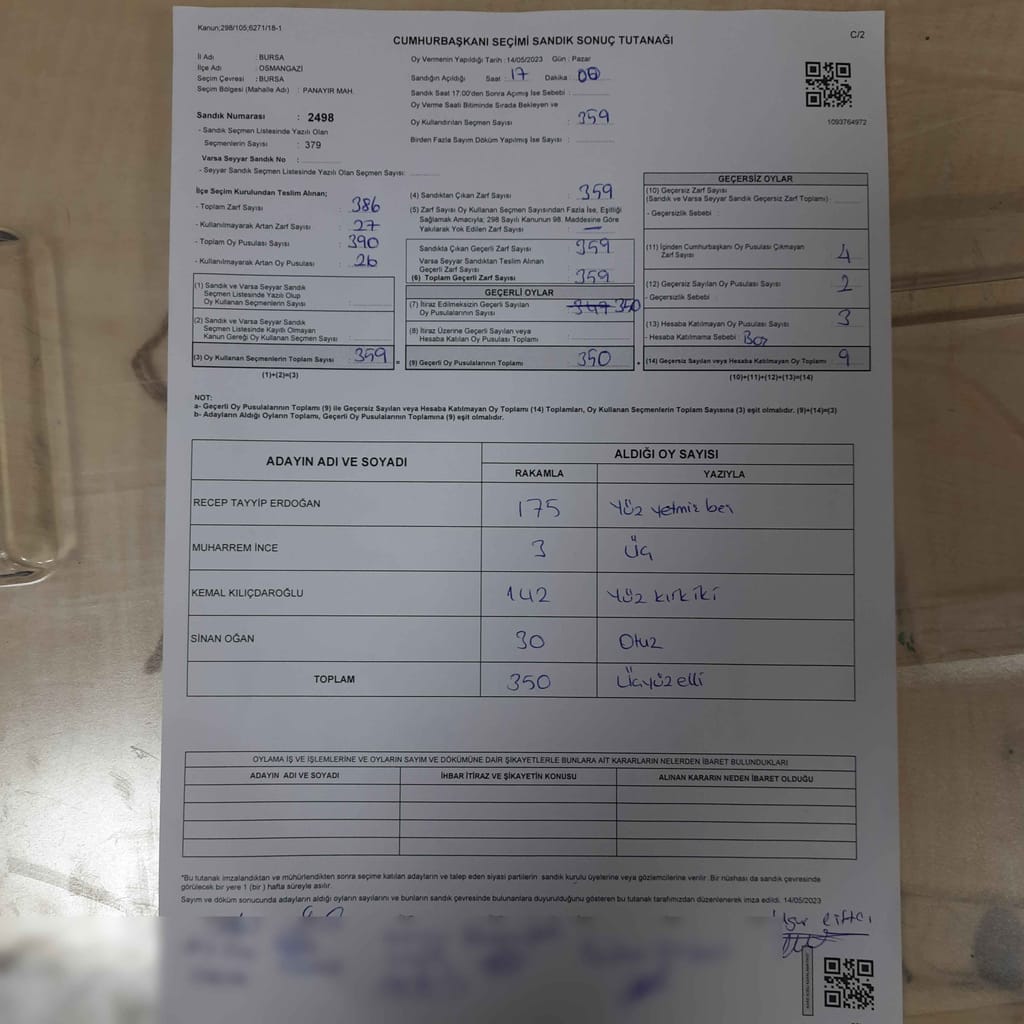 Kanun;298/105;6271/18-1
C/2
CUMHURBAŞKANI SEÇİMİ SANDIK SONUÇ TUTANAĞI
İl Adı : BURSA
İlçe Adı : OSMANGAZİ
Seçim Çevresi : BURSA
Seçim Bölgesi (Mahalle Adı) : PANAYIR MAH.
Oy Vermenin Yapıldığı Tarih : 14/05/2023 Gün : Pazar
Sandığın Açıldığı Saat : 17 Dakika : 00
Sandık Saat 17.00'den Sonra Açımış İse Sebebi :
Oy Verme Saati Bitiminde Sırada Bekleyen ve
Oy Kullandırılan Seçmen Sayısı : 359
Birden Fazla Sayım Döküm Yapılmış İse Sayısı :
1093764972
Sandık Numarası : 2498
- Sandık Seçmen Listesinde Yazılı Olan
Seçmenlerin Sayısı : 379
Varsa Seyyar Sandık No :
- Seyyar Sandık Seçmen Listesinde Yazılı Olan Seçmen Sayısı:
İlçe Seçim Kurulundan Teslim Alınan;
- Toplam Zarf Sayısı : 386
- Kullanılmayarak Artan Zarf Sayısı : 27
- Toplam Oy Pusulası Sayısı : 390
- Kullanılmayarak Artan Oy Pusulası : 26
(1) Sandık ve Varsa Seyyar Sandık
Seçmen Listesinde Yazılı Olup
Oy Kullanan Seçmenlerin Sayısı :
(2) Sandık ve Varsa Seyyar Sandık
Seçmen Listesinde Kayıtlı Olmayan
Kanun Gereği Oy Kullanan Seçmen Sayısı :
(3) Oy Kullanan Seçmenlerin Toplam Sayısı : 359
(1)+(2)=(3)
(4) Sandıktan Çıkan Zarf Sayısı : 359
(5) Zarf Sayısı Oy Kullanan Seçmen Sayısından Fazla İse, Eşitliği
Sağlamak Amacıyla; 298 Sayılı Kanunun 98. Maddesine Göre
Yakılarak Yok Edilen Zarf Sayısı : —
Sandıkla Çıkan Geçerli Zarf Sayısı : 359
Varsa Seyyar Sandıktan Teslim Alınan
Geçerli Zarf Sayısı :
(6) Toplam Geçerli Zarf Sayısı : 359
GEÇERLİ OYLAR
(7) İtiraz Edilmeksizin Geçerli Sayılan
Oy Pusulalarının Sayısı : 347 350
(8) İtiraz Üzerine Geçerli Sayılan veya
Hesaba Katılan Oy Pusulası Toplamı :
= (9) Geçerli Oy Pusulalarının Toplamı : 350
GEÇERSİZ OYLAR
(10) Geçersiz Zarf Sayısı
(Sandık ve Varsa Seyyar Sandık Geçersiz Zarf Toplamı) :
- Geçersizlik Sebebi :
(11) İçinden Cumhurbaşkanı Oy Pusulası Çıkmayan
Zarf Sayısı : 4
(12) Geçersiz Sayılan Oy Pusulası Sayısı : 2
- Geçersizlik Sebebi :
(13) Hesaba Katılmayan Oy Pusulası Sayısı : 3
- Hesaba Katılmama Sebebi : Boş
(14) Geçersiz Sayılan veya Hesaba Katılmayan Oy Toplamı : 9
(10)+(11)+(12)+(13)=(14)
NOT:
a- Geçerli Oy Pusulalarının Toplamı (9) ile Geçersiz Sayılan veya Hesaba Katılmayan Oy Toplamı (14) Toplamları, Oy Kullanan Seçmenlerin Toplam Sayısına (3) eşit olmalıdır. (9)+(14)=(3)
b- Adayların Aldığı Oyların Toplamı, Geçerli Oy Pusulalarının Toplamına (9) eşit olmalıdır.
ADAYIN ADI VE SOYADI ALDIĞI OY SAYISI
RAKAMLA YAZIYLA
RECEP TAYYİP ERDOĞAN 175 Yüz yetmiş beş
MUHARREM İNCE 3 Üç
KEMAL KILIÇDAROĞLU 142 Yüz kırk iki
SİNAN OĞAN 30 Otuz
TOPLAM 350 Üçyüz elli
OYLAMA İŞ VE İŞLEMLERİNE VE OYLARIN SAYIM VE DÖKÜMÜNE DAİR ŞİKAYETLERLE BUNLARA AİT KARARLARIN NELERDEN İBARET BULUNDUKLARI
ADAYIN ADI VE SOYADI İHBAR İTİRAZ VE ŞİKAYETİN KONUSU ALINAN KARARIN NEDEN İBARET OLDUĞU
*Bu tutanak imzalandıktan ve mühürlendikten sonra seçime katılan adayların ve talep eden siyasi partilerin: sandık kurulu üyelerine veya gözlemcilerine verilir. Bir nüshası da sandık çevresinde
görülecek bir yere 1 (bir ) hafta süreyle asılır.
Sayım ve döküm sonucunda adayların aldığı oyların sayılarını ve bunların sandık çevresinde bulunanlara duyurulduğunu gösteren bu tutanak tarafımızdan düzenlenerek imza edildi. 14/05/2023